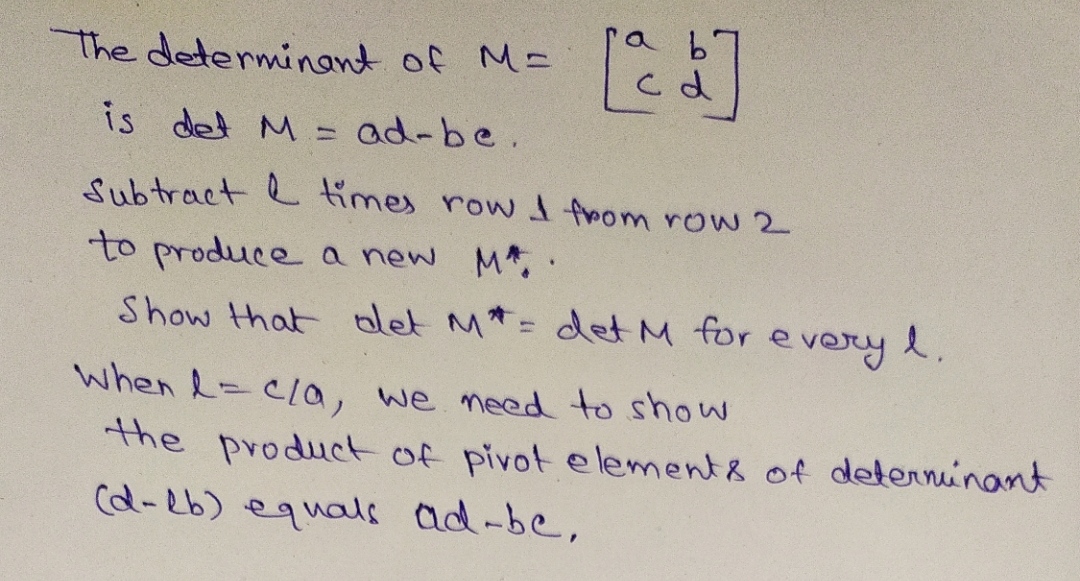 The determinant of M = [a b
c d]
is det M = ad-bc.
Subtract l times row 1 from row 2
to produce a new M*.
Show that det M* = det M for every l.
When l = c/a, we need to show
the product of pivot elements of determinant
(d-lb) equals ad-bc,